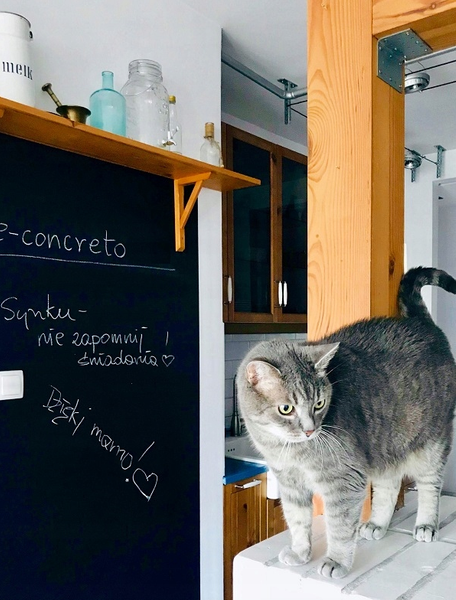 melk
e-concreto
Synku-
nie zapomnij !
śniadania♡
Dzięki mamo! ♡